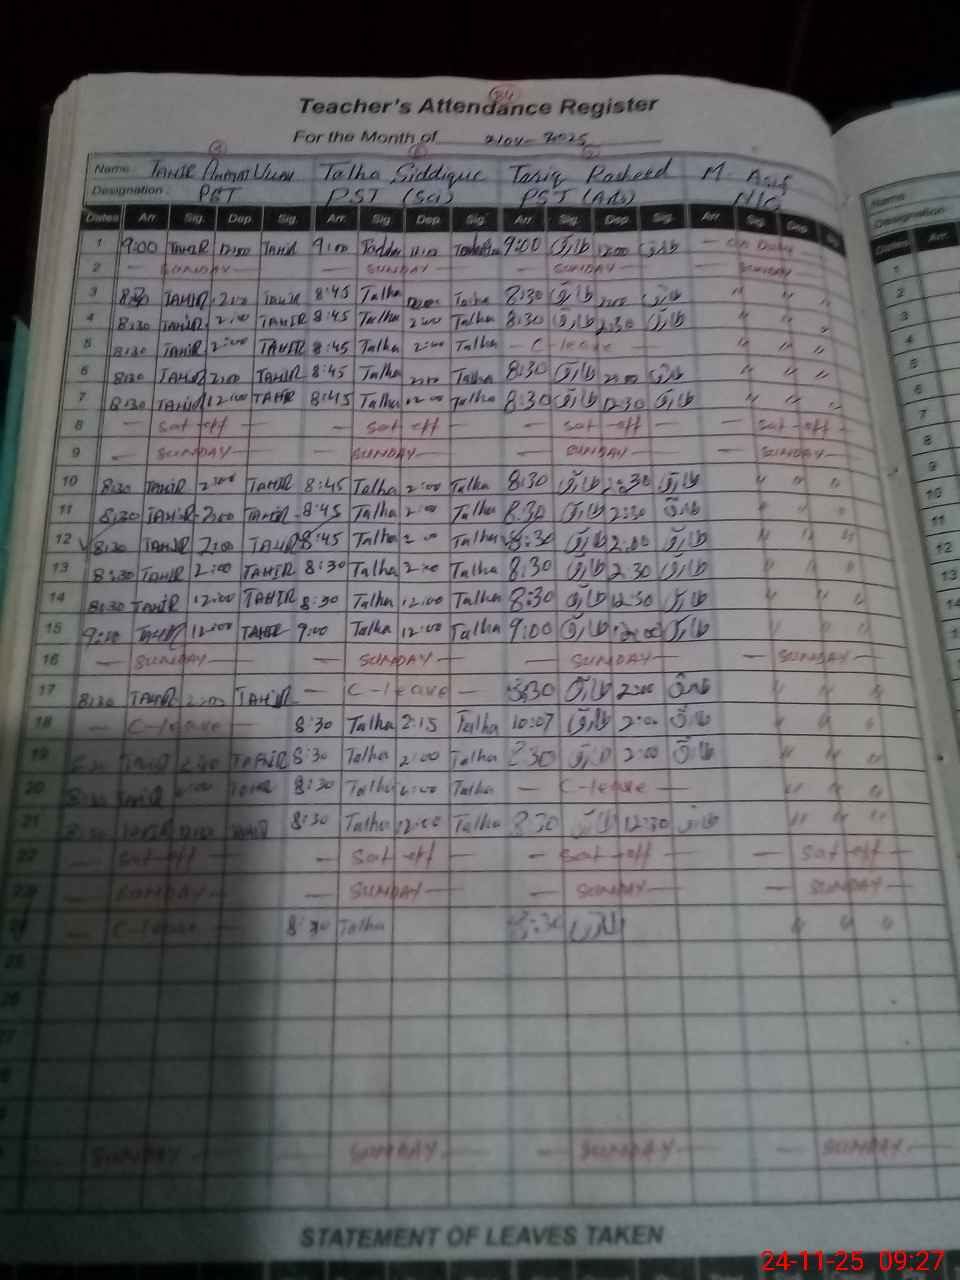 84
Teacher's Attendance Register
For the Month of Nov- 2025
Name Talha Siddique Tariq Rasheed M. Asif
Designation PST PST (Sci) PST (Arts) N/Q
Dates Arr. Sig. Dep. Sig. Arr. Sig. Dep. Sig. Arr. Sig. Dep. Sig. Arr. Sig. Dep. Sig.
1 9:00 TAHIR 12:00 TAHIR 9:00 Talha Talha 9:00 طارق 12:00 طارق — on Duty —
2 — SUNDAY — — SUNDAY — — SUNDAY — SUNDAY
3 8:30 TAHIR 2:00 TAHIR 8:45 Talha Talha 8:30 طارق 2:00 طارق " " "
4 8:30 TAHIR 2:00 TAHIR 8:45 Talha 2:00 Talha 8:30 طارق 2:30 طارق " " "
5 8:30 TAHIR 2:00 TAHIR 8:45 Talha 2:00 Talha — C-leave — " " "
6 8:30 TAHIR 2:00 TAHIR 8:45 Talha 2:00 Talha 8:30 طارق 2:00 طارق " " "
7 8:30 TAHIR 12:00 TAHIR 8:45 Talha 12:00 Talha 8:30 طارق 12:30 طارق " " "
8 — Sat off — — Sat off — — Sat off — — Sat off —
9 — SUNDAY — — SUNDAY — — SUNDAY — — SUNDAY —
10 8:30 TAHIR 2:00 TAHIR 8:45 Talha 2:00 Talha 8:30 طارق 2:30 طارق " " "
11 8:30 TAHIR 2:00 TAHIR 8:45 Talha 2:00 Talha 8:30 طارق 2:30 طارق " " "
12 8:30 TAHIR 2:00 TAHIR 8:45 Talha 2:00 Talha 8:30 طارق 2:00 طارق " " "
13 8:30 TAHIR 2:00 TAHIR 8:30 Talha 2:00 Talha 8:30 طارق 2:30 طارق " " "
14 8:30 TAHIR 12:00 TAHIR 8:30 Talha 12:00 Talha 8:30 طارق 12:30 طارق " " "
15 9:00 TAHIR 12:00 TAHIR 9:00 Talha 12:00 Talha 9:00 طارق 12:00 طارق " " "
16 — SUNDAY — — SUNDAY — — SUNDAY — — SUNDAY —
17 8:30 TAHIR 2:00 TAHIR — C-leave — 8:30 طارق 2:00 طارق " " "
18 — C-leave — 8:30 Talha 2:15 Talha 10:07 طارق 2:00 طارق " " "
19 8:30 TAHIR 2:00 TAHIR 8:30 Talha 2:00 Talha 8:30 طارق 2:00 طارق " " "
20 8:30 TAHIR 2:00 TAHIR 8:30 Talha 2:00 Talha — C-leave — " " "
21 8:30 TAHIR 12:00 TAHIR 8:30 Talha 12:00 Talha 8:30 طارق 12:30 طارق " " "
22 — Sat off — — Sat off — — Sat off — — Sat off —
23 — SUNDAY — — SUNDAY — — SUNDAY — — SUNDAY —
24 — C-leave — 8:30 Talha 8:30 طارق " " "
25
26
27
— SUNDAY — — SUNDAY — — SUNDAY — — SUNDAY —
STATEMENT OF LEAVES TAKEN
Name
Designation
Dates Arr.
1
2
3
4
5
6
7
8
9
10
11
12
13
14
24-11-25 09:27